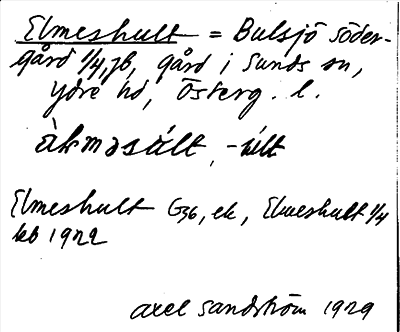 Elmeshult = Bulsjö Söder-
gård 1/4, jb, gård i Sunds sn,
Ydre hd, Österg. l.
àkməsúlt, -últ
Elmeshult G36, ek, Elmeshult 1/4
kb 1922
Axel Sandström 1929